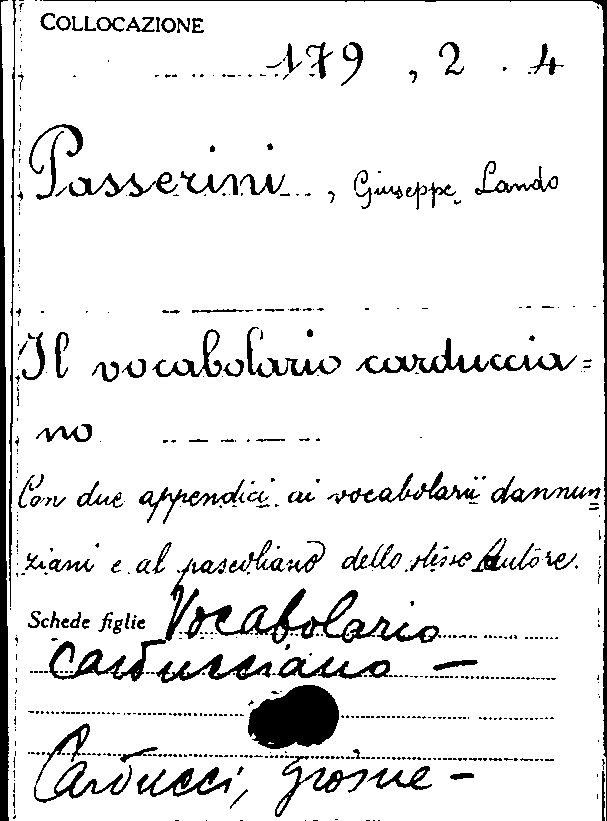 COLLOCAZIONE
179 , 2 . 4
Passerini , Giuseppe Lando
Il vocabolario carduccia=
no
Con due appendici ai vocabolarii dannun=
ziani e al pascoliano dello stesso Autore.
Schede figlie Vocabolario
Carducciano —
Carducci, Giosue —